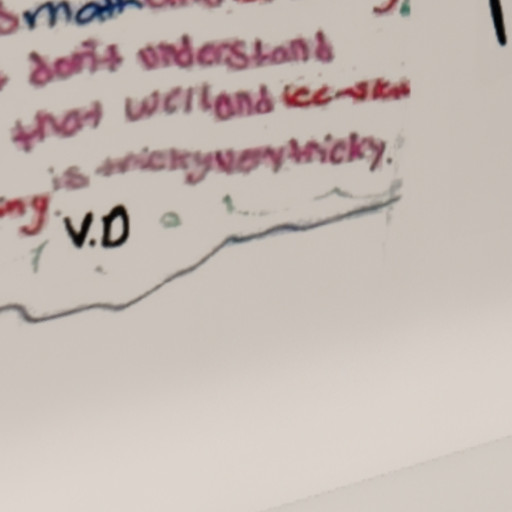 math
don't understand
that well and ice-sk
is tricky very tricky.
ng.
V.D